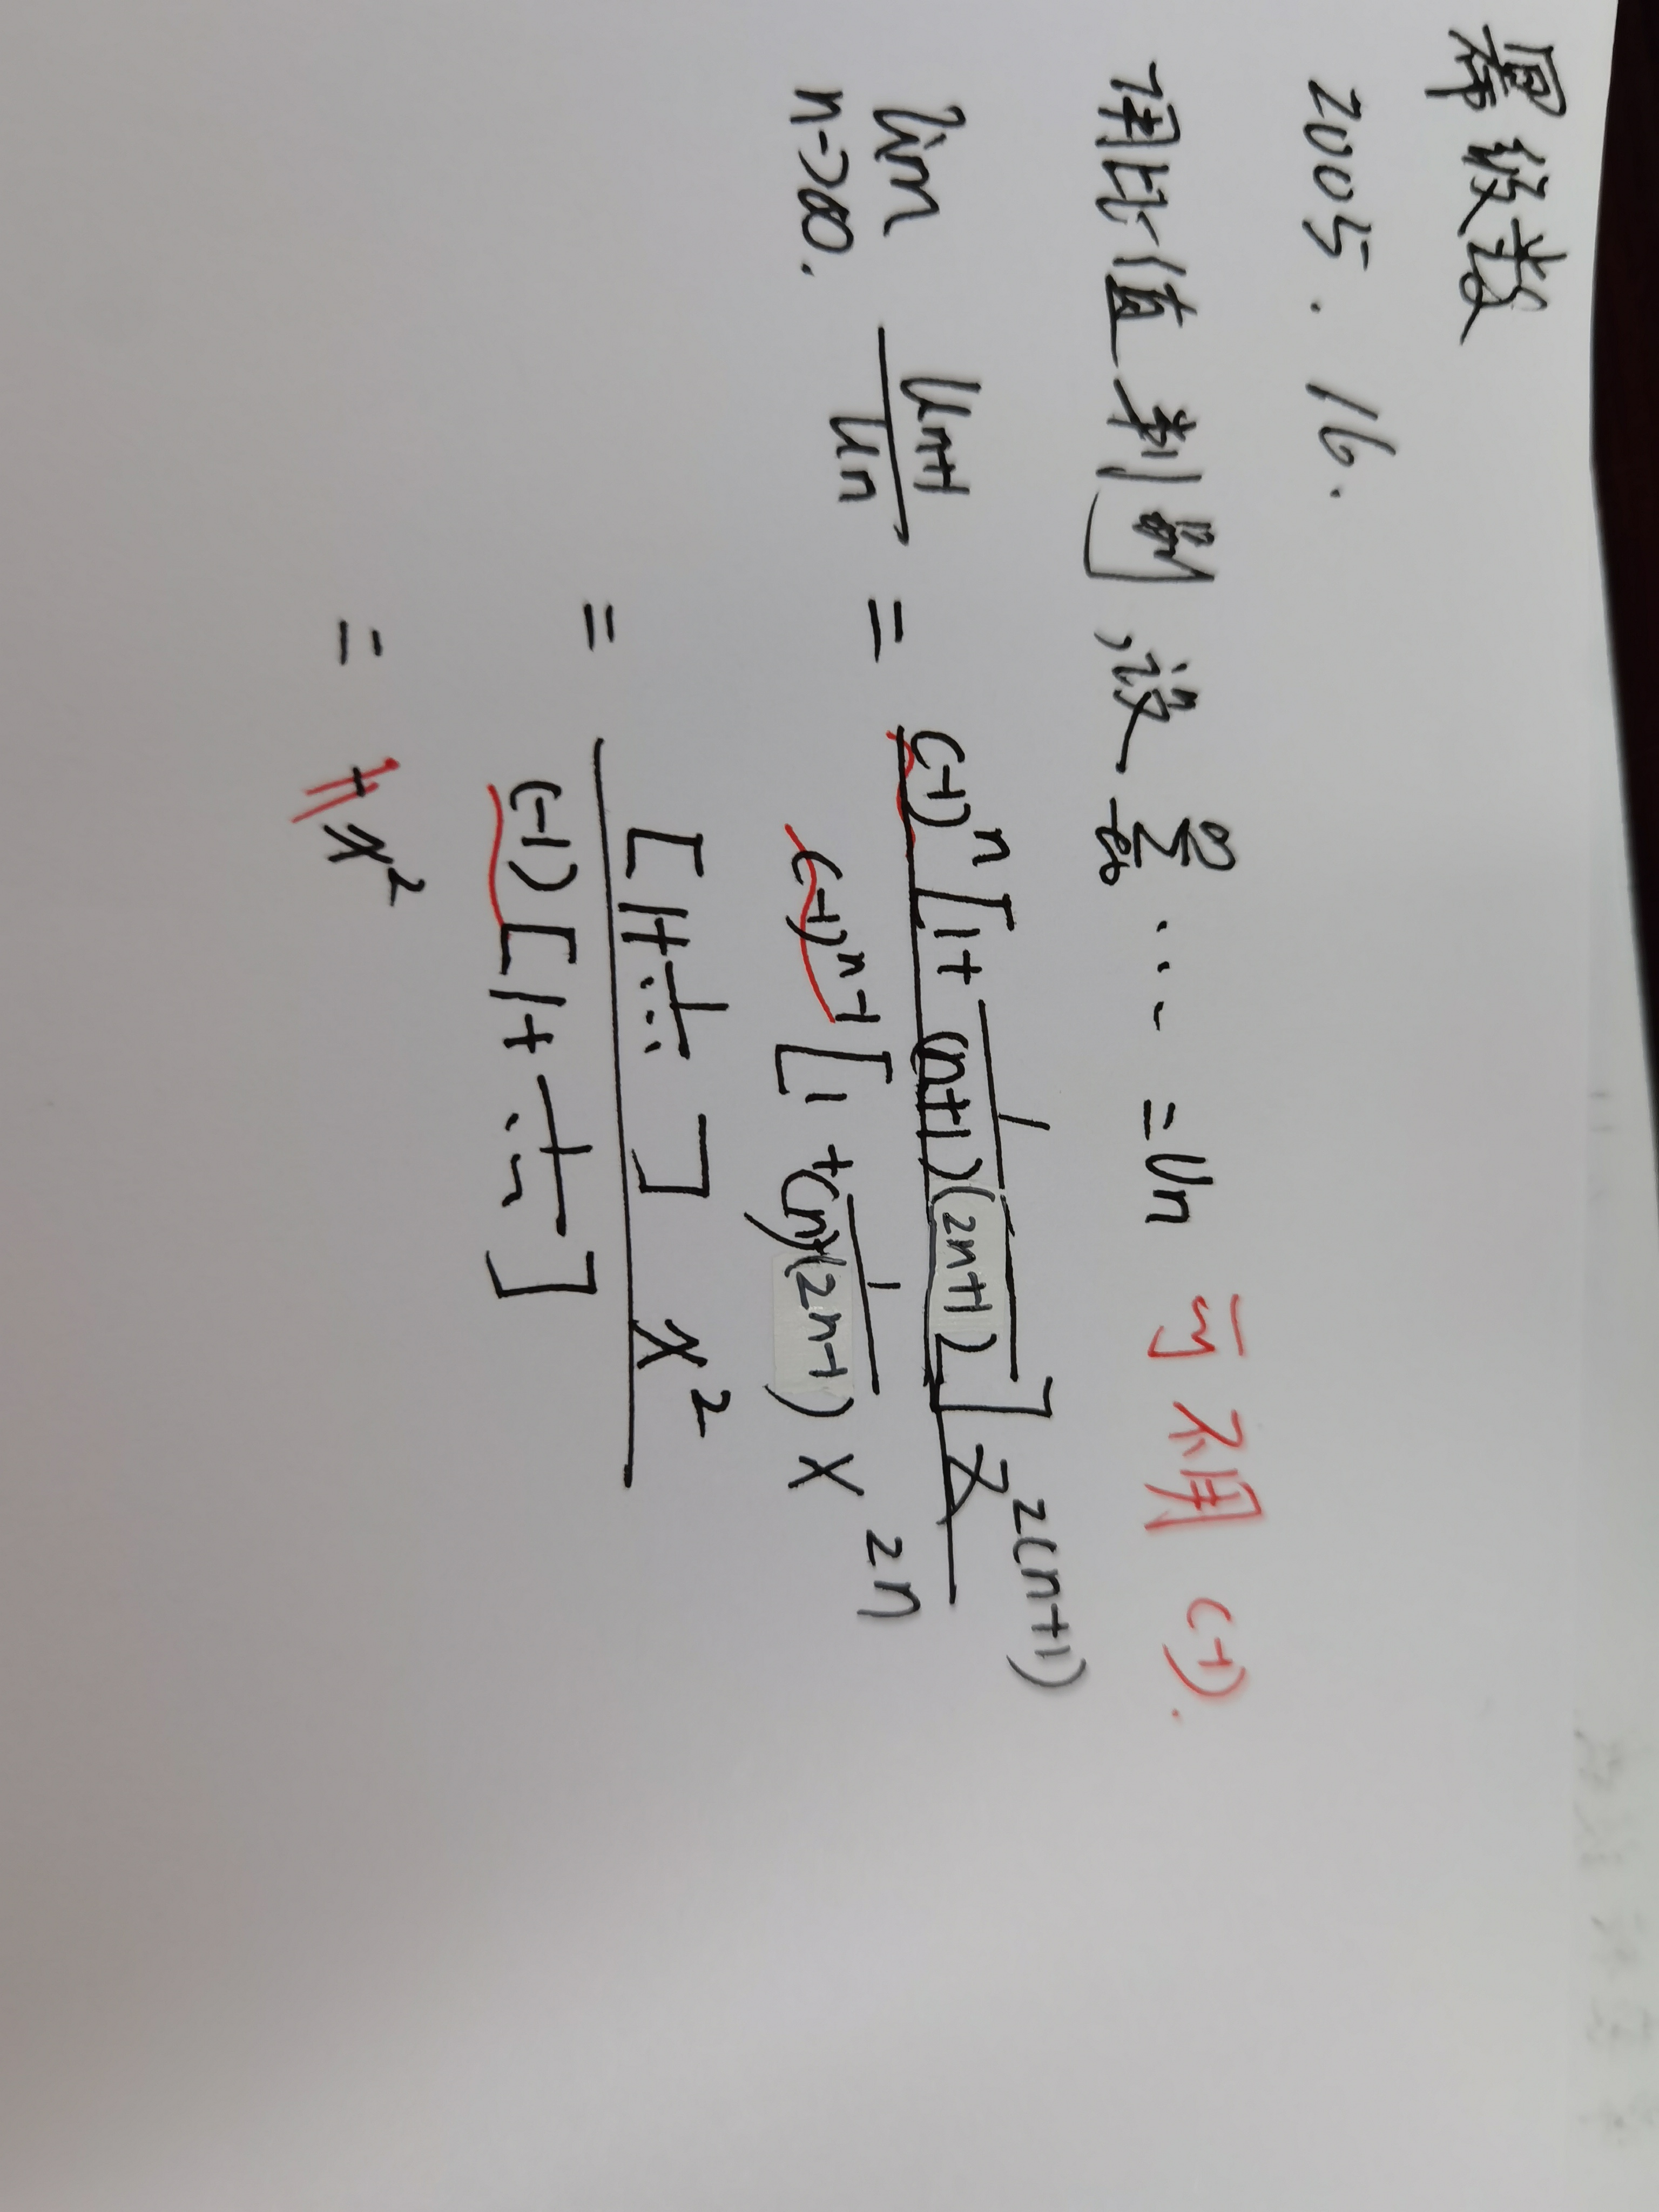 幂级数
2005. 16.
用比值判别,设 ∑ ... = Un 可不用 (-1).
lim n->∞. Un+1 / Un = (-1)^n [1+ 1/(n+1)(2n+1)] x^2(n+1) / (-1)^n-1 [1+ 1/(n)(2n-1) x^2n
= [1+ 1/... ] x^2 / (-1)[1+ 1/...]
= x^2